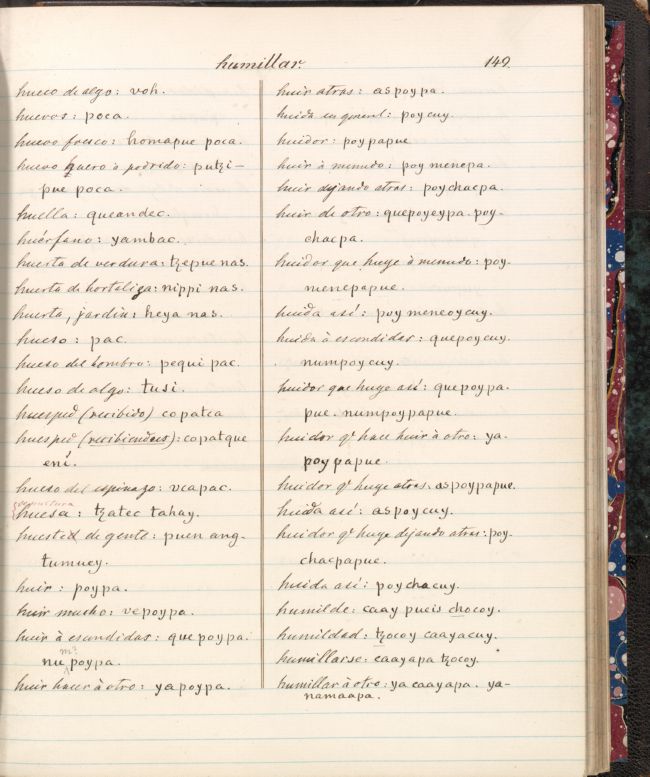 humillar. 149.
hueco de algo: voh.
huevos: poca.
huevo fresco: homapue poca.
huevo huero ò podrido: putzi-
pue poca.
huella: queandec.
huérfano: yambac.
huerta de verdura: tzepue nas.
huerta de hortaliza: nippi nas.
huerta, jardin: heya nas.
hueso: pac.
hueso del hombro: pequi pac.
hueso de algo: tusi.
huesped (recibido) copatca
huesped (recibiendoes): copatque
ení.
hueso del espinazo: vcapac.
sepultura
huesa: tzatec tahay.
hueste de gente: puen ang-
tumuey.
huir: poypa.
huir mucho: vepoypa.
huir à escundidas: que poypa.
nu m? poypa.
huir hacer à otro: yapoypa.
huir atras: aspoypa.
huida en general: poycuy.
huidor: poypapue
huir à menudo: poy menepa.
huir dejando atras: poychacpa.
huir de otro: quepoyeypa. poy-
chacpa.
huidor que huye à menudo: poy.
menepapue.
huida asi: poy meneoycuy.
huida à escondidas: quepoycuy.
numpoycuy.
huidor que huye asi: quepoypa.
pue. numpoypapue.
huidor q̃ hace huir à otro: ya.
poypapue.
huidor q̃ huye atras. aspoypapue.
huida asi: aspoycuy.
huidor q̃ huye dejando atras: poy.
chacpapue.
huida asi: poychacuy.
humilde: caay pueis chocoy.
humildad: tzocoy caayacuy.
humillarse: caayapa tzocoy.
humillar à otro: ya caayapa. ya-
namaapa.